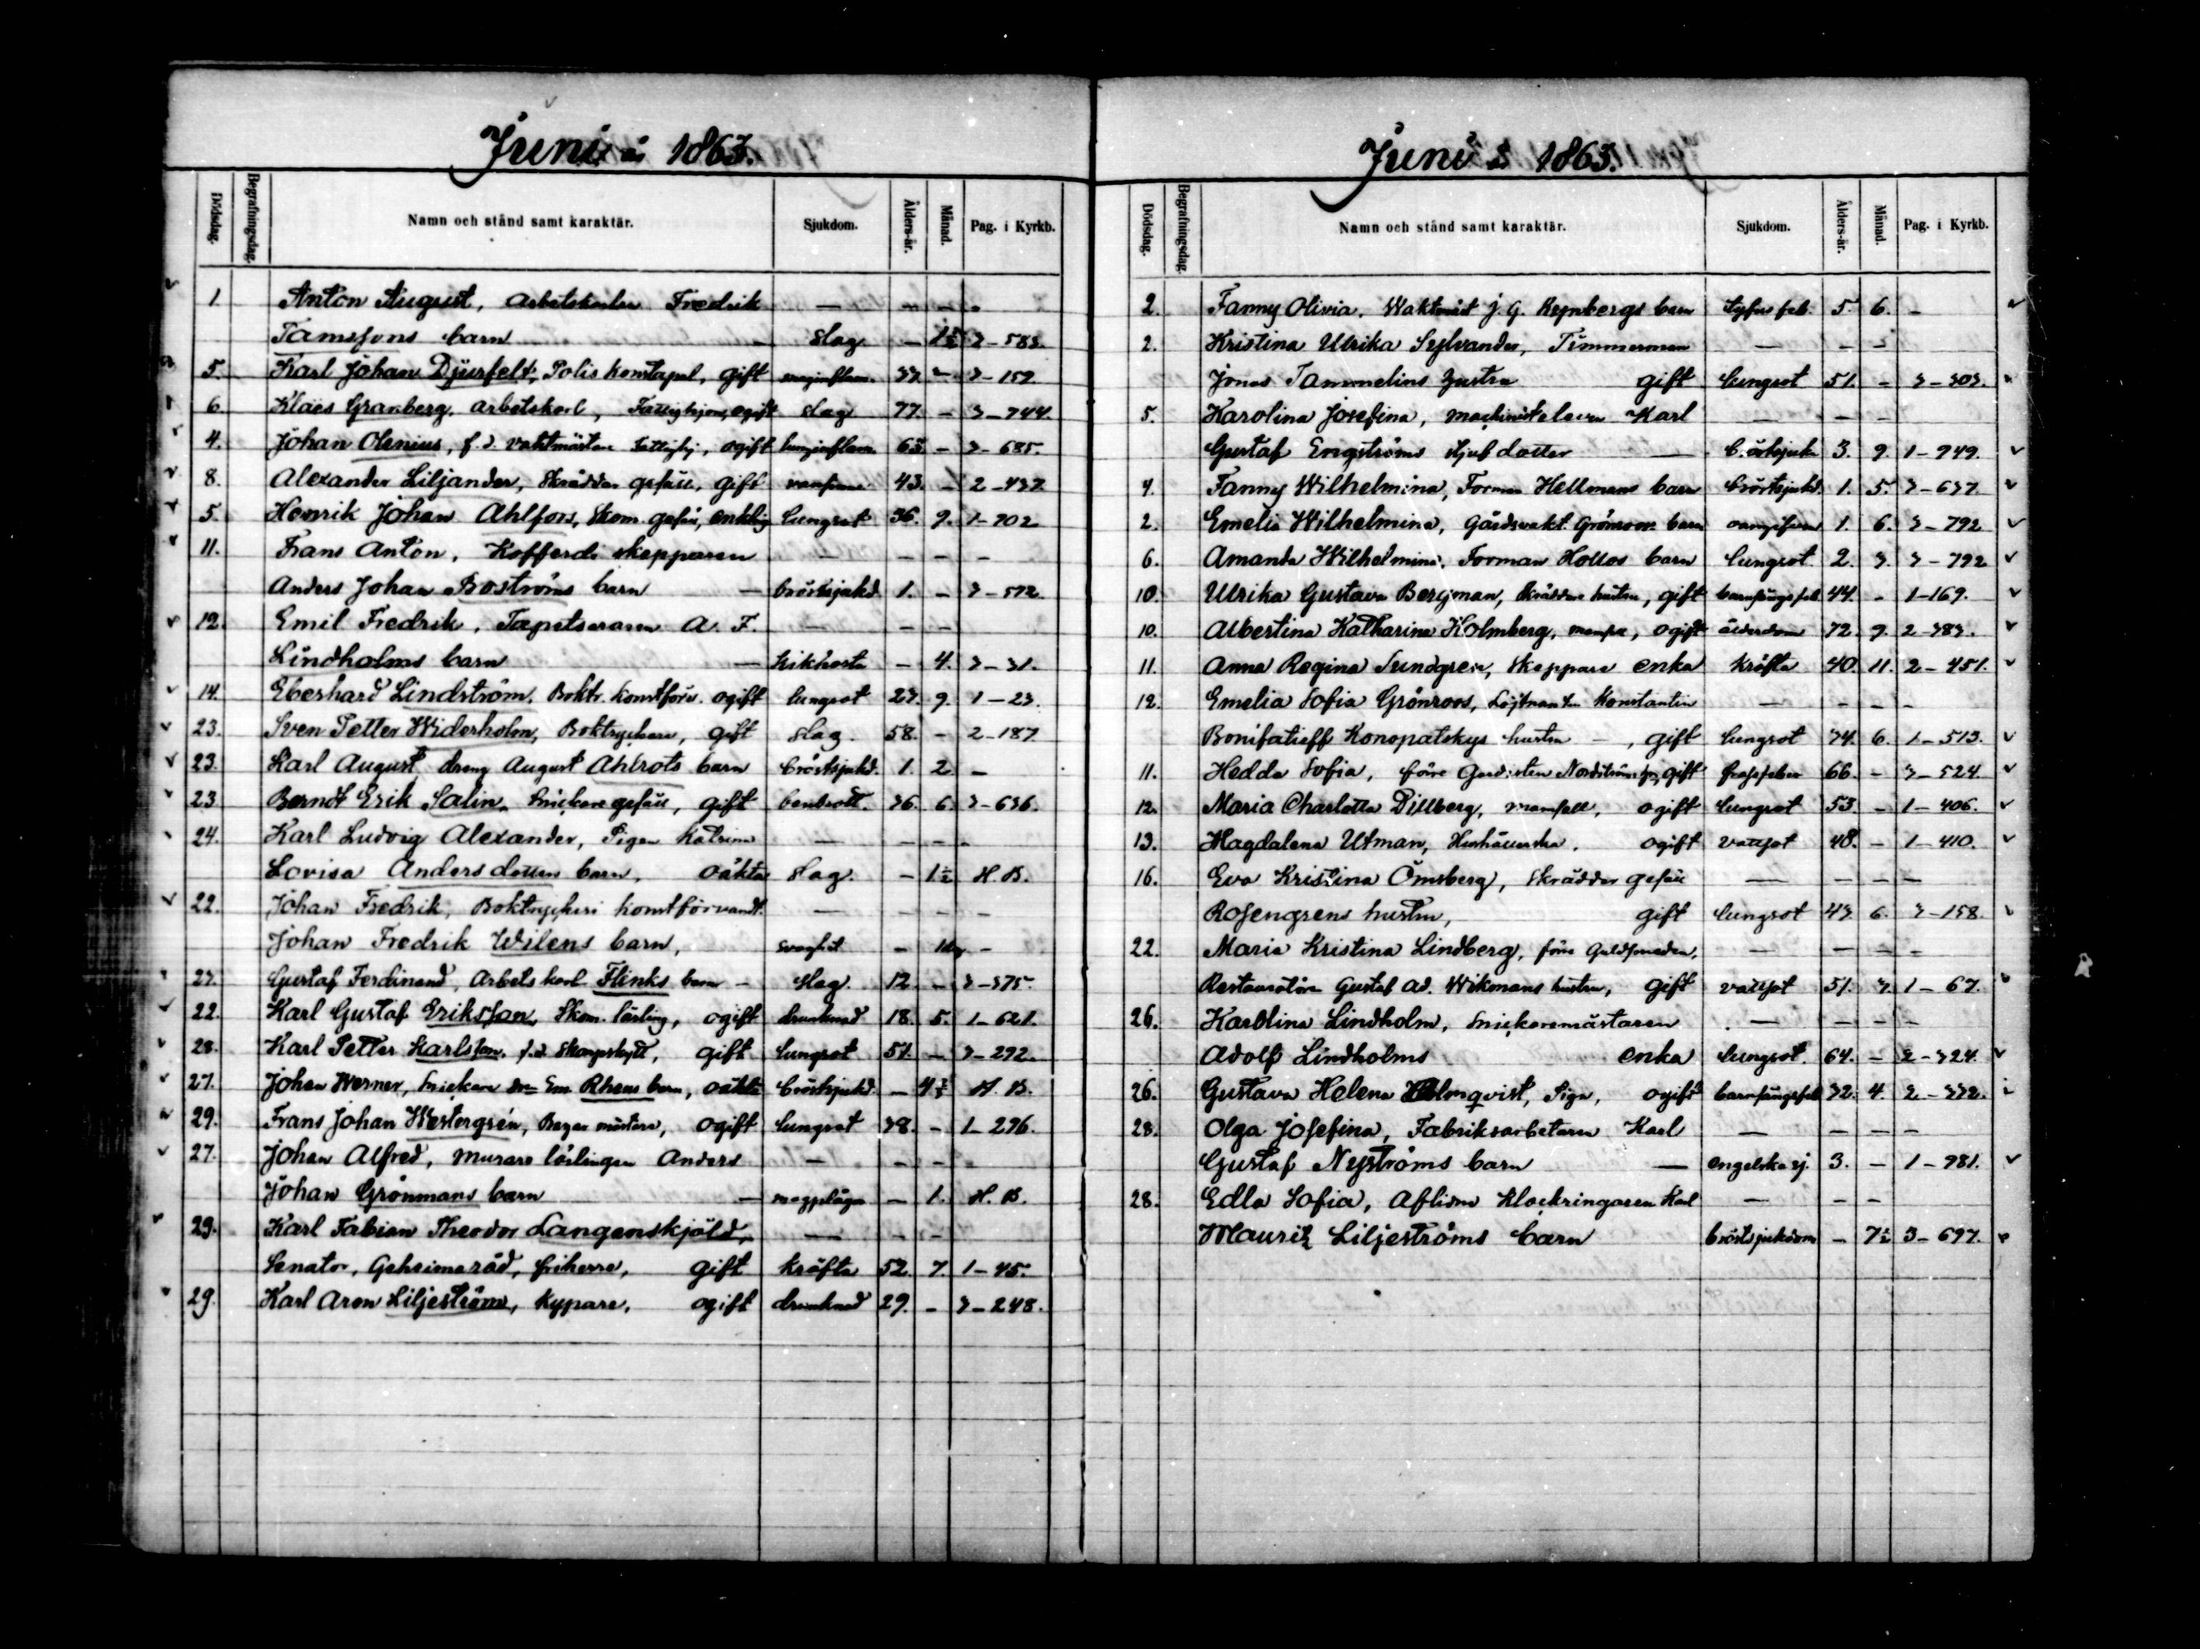 Juni å 1863.
Dödsdag. Begrafningsdag. Namn och stånd samt karaktär. Sjukdom. Ålders-år. Månad. Pag. i Kyrkb.
1. Anton August, Arbetskarlen Fredrik — — — -
Tamssons barn — Slag — 1½ 3-583.
5. Karl Johan Djurfelt, Polis konstapel, gift 33. — 3-159.
6. Klaes Granberg, arbetskarl, Fattighjon, ogift Slag 77. — 3-744.
4. Johan Olenius, f. d. Vaktmästare ogift lunginflam. 63 — 3-685.
8. Alexander Liljander, Skräddar gesäll, gift 43. — 2-437.
5. Henrik Johan Ahlfors, Skom. gesäll, enkling lungsot 36. 9. 1-702
11. Frans Anton, Kofferdi skepparen — — — —
Anders Johan Boströms barn — bröstsjukd. 1. — 3-572.
12. Emil Fredrik, Tapetseraren A. F. — — —
Lindholms barn — kikhosta — 4. 3-31.
14. Eberhard Lindström, Boktr. konstförv. ogift lungsot 23. 9. 1-23.
23. Sven Petter Widerholm, Boktryckare, gift Slag. 58. — 2-187
23. Karl August, dräng August Ahlrots barn bröstsjukd. 1. 2. —
23. Berndt Erik Salin, Snickare gesäll, gift benbrott. 36. 6. 3-636.
24. Karl Ludvig Alexander, Pigan Katrina — — — -
Lovisa Andersdotters barn, oäkta Slag. — 1½ H. B.
22. Johan Fredrik, Boktryckeri konstförvandt. — — — —
Johan Fredrik Wilens barn, svaghet — —
23. Gustaf Ferdinand, Arbets karl Flinks barn — Slag 12. — 3-375
22. Karl Gustaf Eriksson, Skom. lärling, ogift drunknad 18. 5. 1-621.
28. Karl Petter Karlsson, f. d. Skarpskytt, gift lungsot 51. — 3-292.
27. Johan Werner, Snickare Em. Rhens barn, oäkta bröstsjukd. — 4½ H. B.
29. Frans Johan Westergrén, Bagar mästare, ogift lungsot 38. — 1-296.
27. Johan Alfred, Murare lärlingen Anders — — —
Johan Grönmans barn — magplåga — 1. H. B.
29. Karl Fabian Theodor Langenskjöld, — — —
Senator, Geheimeråd, friherre, gift kräfta 52 7. 1-45.
29. Karl Aron Liljeström, Kypare, ogift drunknad 29. — 3-248.
Juni å 1863.
Dödsdag. Begrafningsdag. Namn och stånd samt karaktär. Sjukdom. Ålders-år. Månad. Pag. i Kyrkb.
2. Fanny Olivia, Waktmäst J. G. Rejnbergs barn tyfus feb. 5. 6. —
2. Kristina Ulrika Sylvander, Timmerman — — —
Jonas Tammelins hustru gift lungsot 51. — 3-303.
5. Karolina Josefina, machinist eleven Karl — — —
Gustaf Engströms stjuf dotter — bröstsjuk 3. 9. 1-949.
4. Fanny Wilhelmina, Forman Hellmans barn bröstsjukd. 1. 5. 3-637.
2. Emelia Wilhelmina, Gårdsvakt. Grönroos barn 1. 6. 3-792
6. Amanda Wilhelmina, Forman Hollos barn lungsot. 2. 3. 3-792
10. Ulrika Gustava Bergman, Skräddare hustru, gift barnsängsfeb. 44. — 1-169.
10. Albertina Katharina Holmberg, mamsell, ogift ålderdom 72. 9. 2-383.
11. Anna Regina Sundgren, Skeppare enka kräfta 40. 11. 2-451.
12. Emelia Sofia Grönroos, Löjtnanten Konstantin — — — —
Bonifatieff Konopatskys hustru —, gift lungsot 34. 6. 1-513.
11. Hedda Sofia, förre Gardisten Nordströms, gift 66. — 3-524
12. Maria Charlotta Dillberg, mamsell, ogift lungsot 53. — 1-406.
13. Magdalena Utman, Hushållerska, ogift vattsot 48. — 1-410.
16. Eva Kristina Ömsberg, Skräddar gesäll — — — —
Rosengrens hustru, gift lungsot 43. 6. 3-158.
22. Maria Kristina Lindberg, förre Guldsmeden, — — — —
Restauratören Gustaf Ad. Wikmans hustru, gift vattsot 51. 3. 1-67.
26. Karolina Lindholm, Snickaremästaren — — — —
Adolf Lindholms enka lungsot. 64. — 2-324.
26. Gustava Helena Holmqvist, Piga, ogift barnsängsfeb 32. 4. 2-332.
28. Olga Josefina, Fabriksarbetaren Karl — — — —
Gustaf Nyströms barn — engelska sj. 3. — 1-981.
28. Edla Sofia, Aflidne klockringaren Karl — — —
Mauritz Liljeströms barn bröstsjukdom — 7½ 3-697.